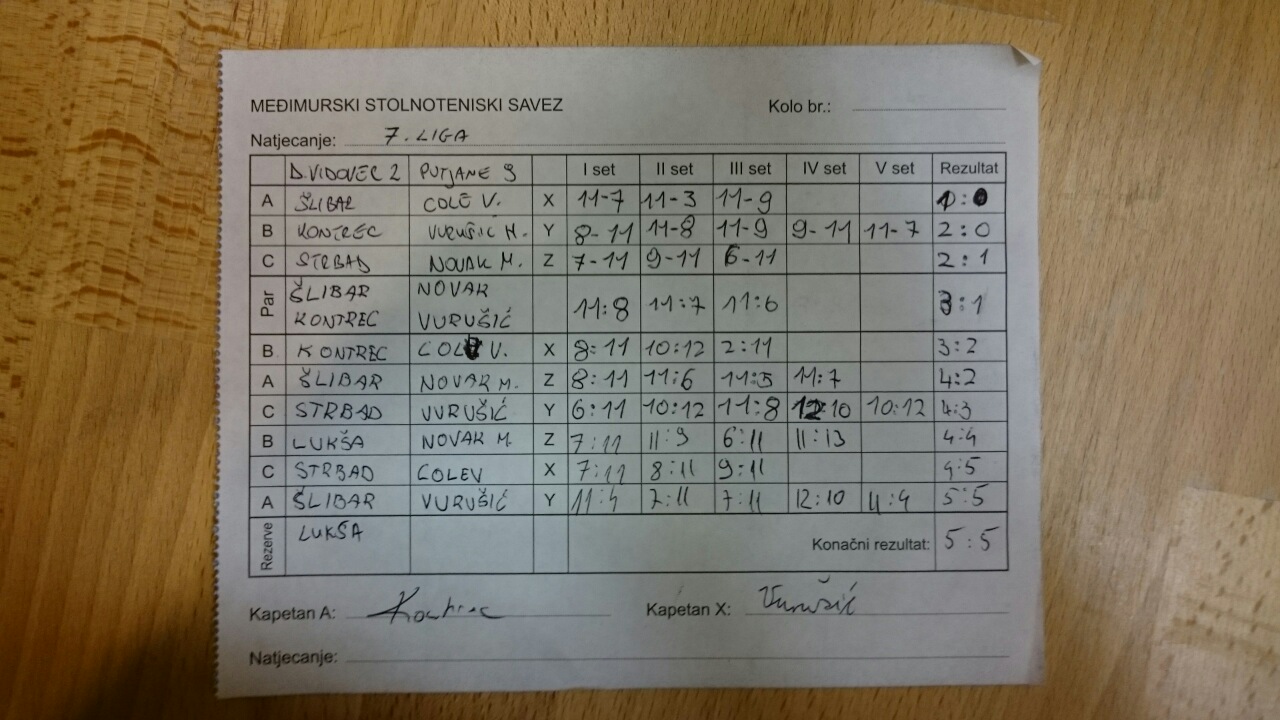 MEĐIMURSKI STOLNOTENISKI SAVEZ Kolo br.:
Natjecanje: 7. LIGA
D.VIDOVEC 2 PUTJANE 9 I set II set III set IV set V set Rezultat
A ŠLIBAR COLE V. X 11-7 11-3 11-9 1:0
B KONTREC VURUŠIĆ M. Y 8-11 11-8 11-9 9-11 11-7 2:0
C STRBAD NOVAK M. Z 7-11 9-11 6-11 2:1
Par ŠLIBAR NOVAK
KONTREC VURUŠIĆ 11:8 11:7 11:6 3:1
B KONTREC V. X 8:11 10:12 2:11 3:2
A ŠLIBAR NOVAK M. Z 8:11 11:6 11:5 11:7 4:2
C STRBAD VURUŠIĆ Y 6:11 10:12 11:8 12:10 10:12 4:3
B LUKŠA NOVAK M. Z 7:11 11:9 6:11 11:13 4:4
C STRBAD COLEV X 7:11 8:11 9:11 4:5
A ŠLIBAR VURUŠIĆ Y 11:4 7:11 7:11 12:10 11:4 5:5
Rezerve LUKŠA Konačni rezultat: 5:5
Kapetan A: Kontrec Kapetan X: Vurušić
Natjecanje: